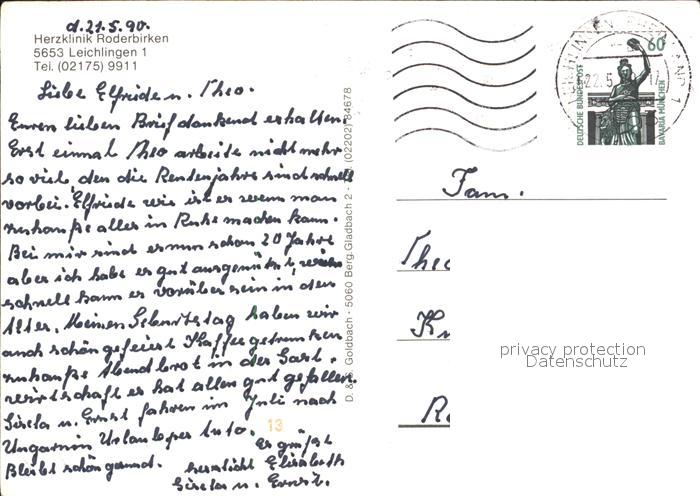 d. 21.5.90.
Herzklinik Roderbirken
5653 Leichlingen 1
Tel. (02175) 9911
Liebe Elfriede u. Theo.
Euren lieben Brief dankend erhalten.
Erst einmal Theo arbeite nicht mehr
so viel den die Rentenjahre sind schnell
vorbei. Elfriede wie ist es wenn man
zuhauße alles in Ruhe machen kann.
Bei mir sind es nun schon 20 Jahre
aber ich habe es gut ausgenützt,
schnell kann es vorüber sein in den
Alter. Meinen Geburtstag haben wir
auch schön gefeiert Kaffee getrunken
zuhauße Abendbrot in der Gast-
wirtschaft es hat allen gut gefallen.
Gisela u. Ernst fahren im Juli nach
Ungarn in Urlaub per Auto.
Es grüßt
Bleibt schön gesund.
herzlicht Elisabeth
Gisela u. Ernst.
13
D. Goldbach - 5060 Berg. Gladbach 2 - (02202) 84678
60
DEUTSCHE BUNDESPOST
BAVARIA MÜNCHEN
22.5
Fam.
Theo
K
R
privacy protection
Datenschutz